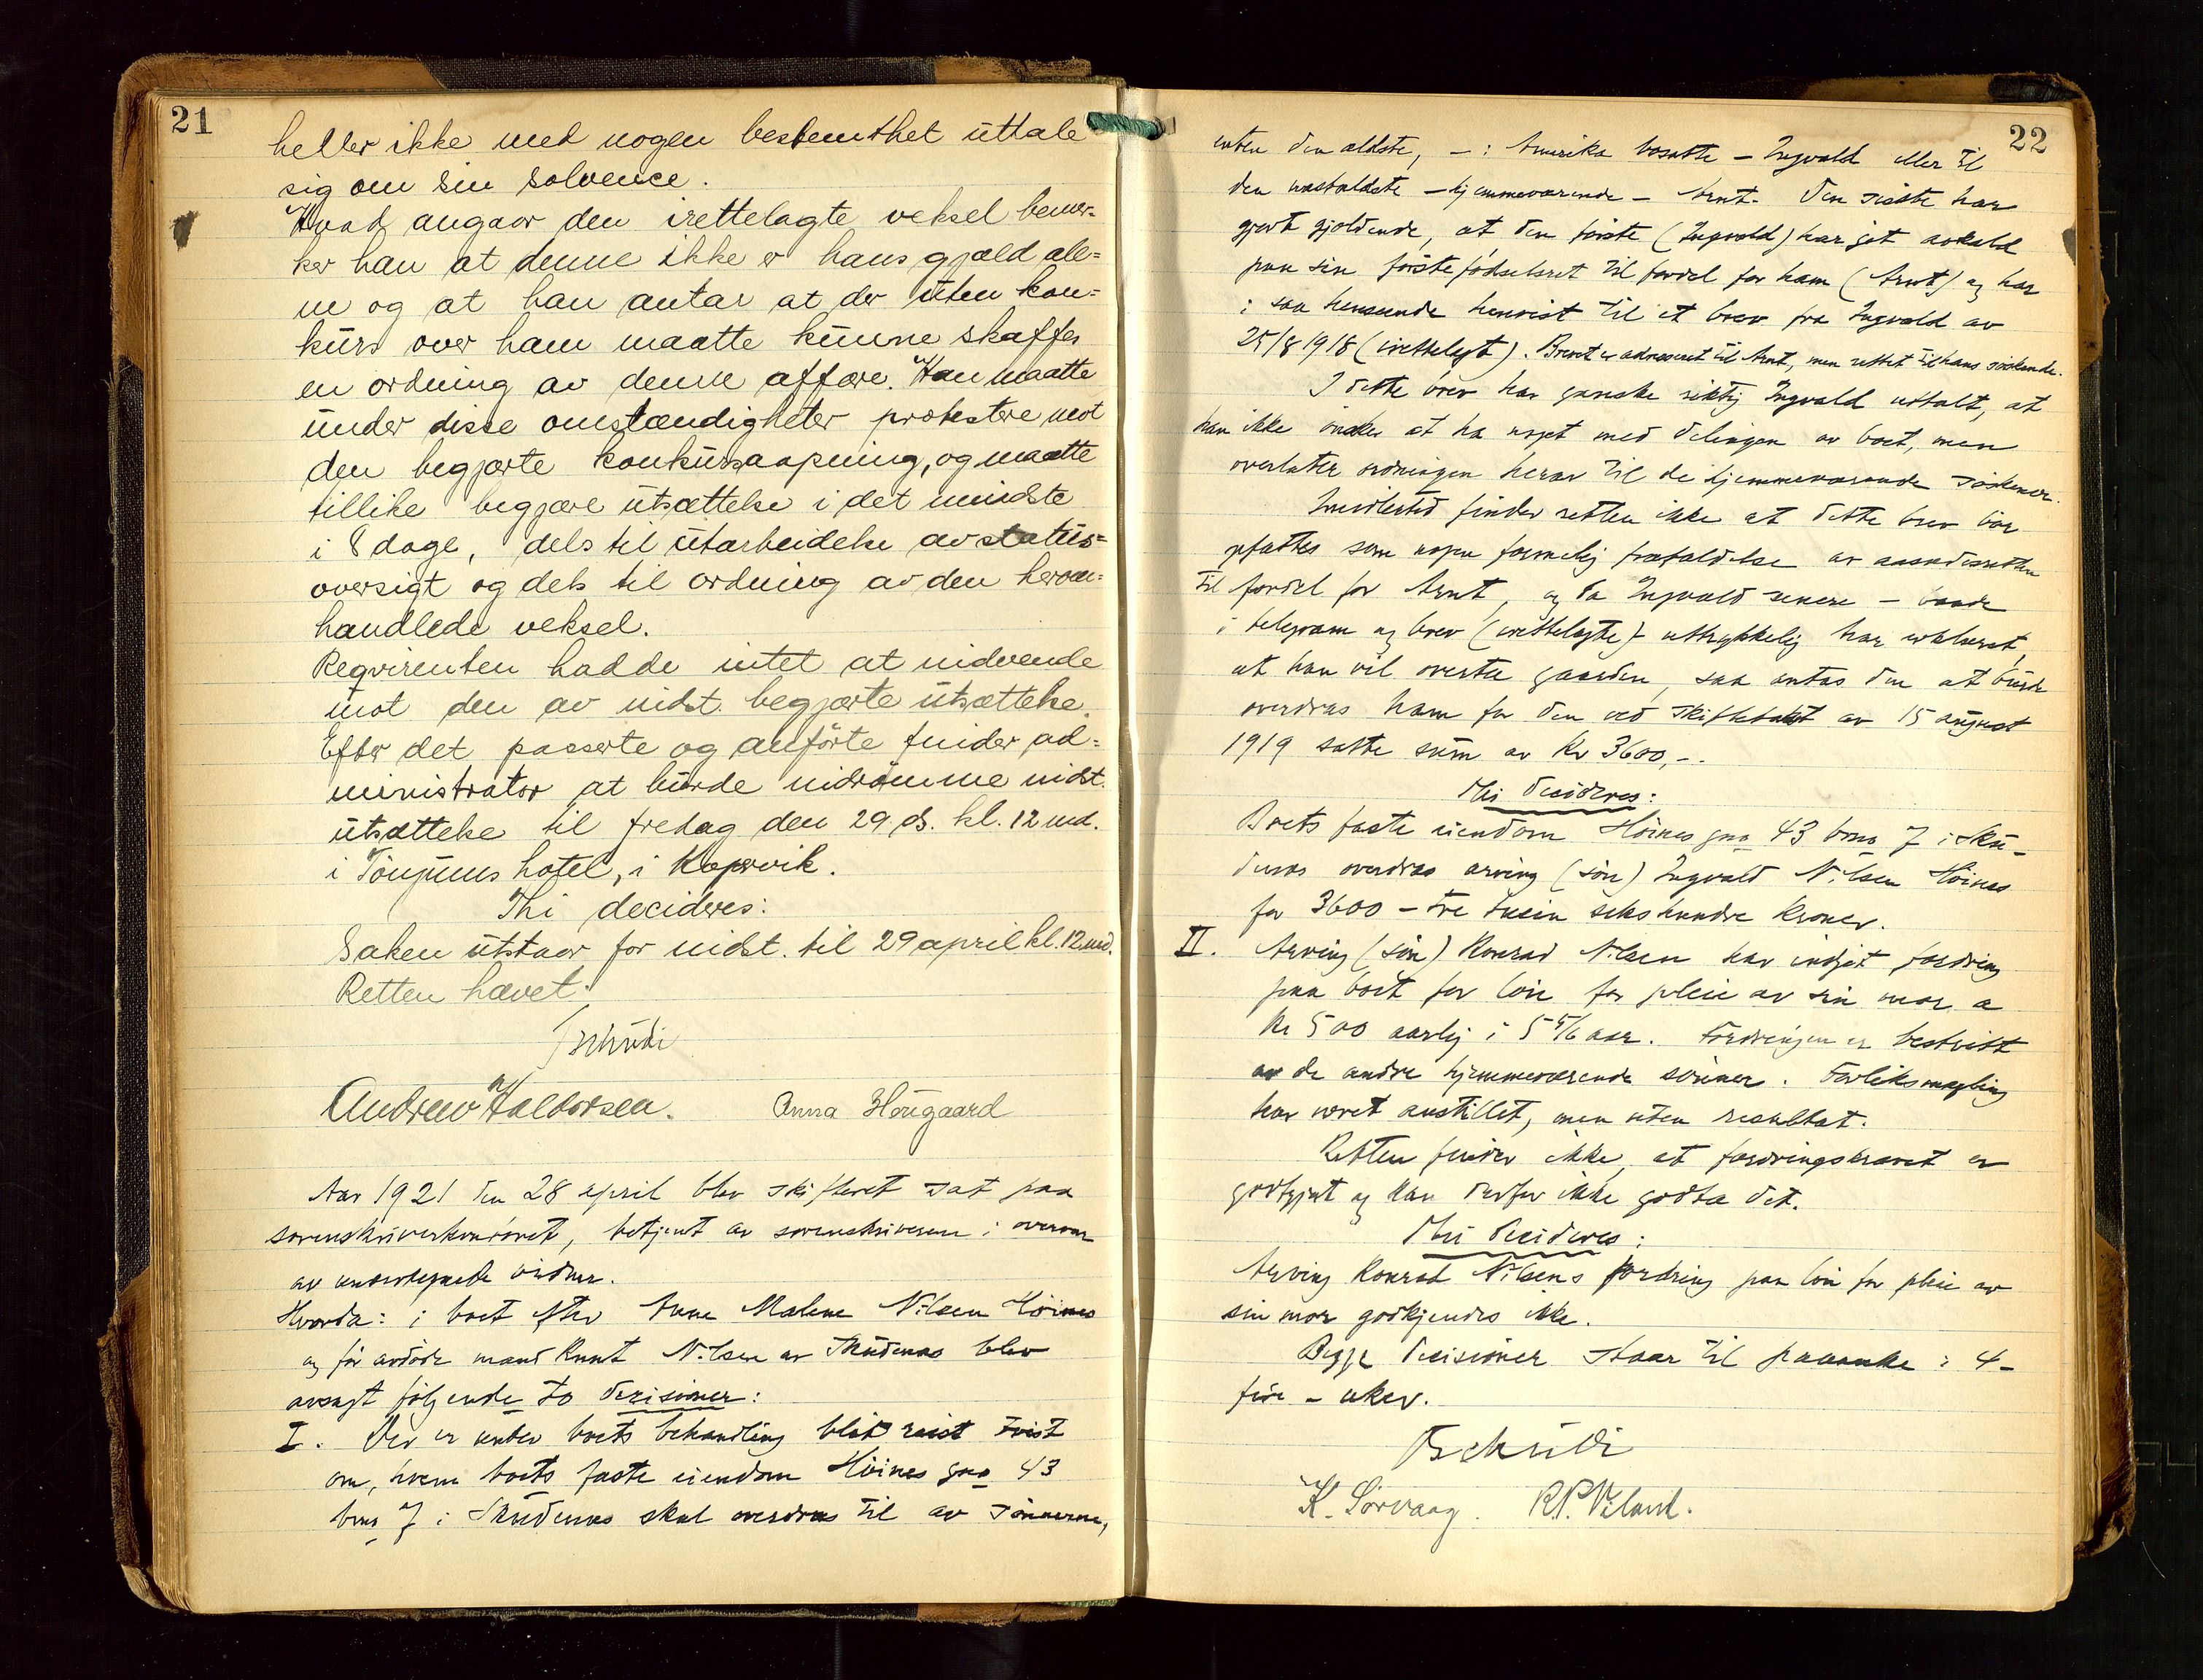 21
heller ikke med nogen bestemthet uttale
sig om sin solvence.
Hvad angaar den irettelagte veksel bemer-
ker han at denne ikke er hans gjæld ale-
ne og at han antar at der uten kon-
kurs over ham maatte kunne skaffes
en ordning av denne affære. Han maatte
under disse omstændigheter protestere mot
den begjærte konkursaapning, og maatte
tillike begjære utsættelse i det mindste
i 8 dage, dels til utarbeidelse av status-
oversigt og dels til ordning av den herom-
handlede veksel.
Reqvirenten hadde intet at indvende
mot den av indst. begjærte utsættelse.
Efter det passerte og anførte finder ad-
ministrator at burde indrømme indst.
utsættelse til fredag den 29. ds. kl. 12 md.
i hotel, i Kopervik.
Thi decideres:
Saken utstaar for indst. til 29 april kl. 12 md.
Retten hævet.
Tschudi
Andreas Halvorsen. Anna Hougaard
Aar 1921 den 28 april blev skifteret sat paa
sorenskriverkontoret, betjent av sorenskriveren i overvær
av undertegnede vidner.
Hvorda: i boet efter Anne Malene Nilsen Høines
og før avdøde mand Knut Nilsen av Skudenes blev
avsagt følgende to decisioner:
I. Der er under boets behandling blit reist tvist
om, hvem boets faste eiendom Høines gno 43
bno 7 i Skudenes skal overdras til av sønnerne,
22
enten den ældste, -: Amerika bosatte - Ingvald eller til
den næstældste - hjemmeværende - Arnt. Den sidste har
gjort gjældende, at den første (Ingvald) har git avkald
paa sin førstefødselsret til fordel for ham (Arnt) og har
i saa henseende henvist til et brev fra Ingvald av
25/8 1918 (irettelagt). Brevet er adresseret til Arnt, men rettet til hans søskende.
I dette brev har ganske riktig Ingvald uttalt, at
han ikke ønsker at ha noget med delingen av boet, men
overlater ordningen herav til de hjemmeværende søskener.
Imidlertid finder retten ikke at dette brev bør
opfattes som nogen formelig frafaldelse av aasædesretten
til fordel for Arnt, og da Ingvald senere - baade
i telegram og brev (irettelagte) - uttrykkelig har erklæret,
at han vil overta gaarden, saa antas den at burde
overdras ham for den ved skiftetakst av 15 august
1919 satte sum av Kr 3600,-.
Thi decideres:
Boets faste eiendom Høines gno 43 bno 7 i Sku-
denes overdras arving (søn) Ingvald Nilsen Høines
for 3600 - tre tusin sekshundre Kroner.
II. Arving (søn) Konrad Nilsen har indgit fordring
paa boet for løn for pleie av sin mor a
Kr 500 aarlig i 5 5/6 aar. Fordringen er bestridt
av de andre hjemmeværende sønner. Forliksmægling
har været anstillet, men uten resultat.
Retten finder ikke, at fordringskravet er
godtgjort og kan derfor ikke godta det.
Thi decideres:
Arving Konrad Nilsens fordring paa løn for pleie av
sin mor godkjendes ikke.
Begge decisioner staar til paaanke i 4-
fire - uker.
Tschudi
K. Sørvaag. R.P. Viland.